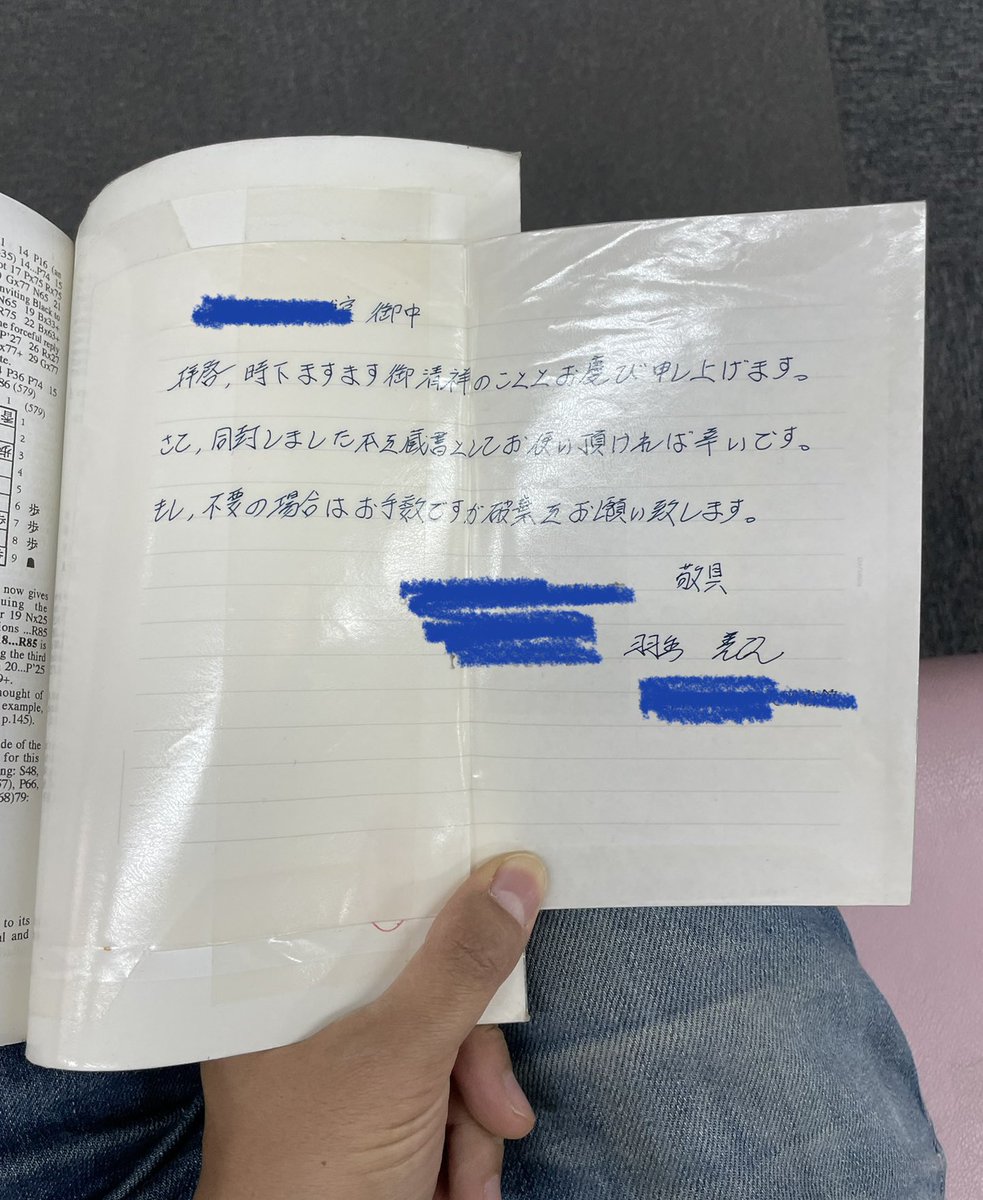 14 P16 (an
35) 14...P74 15
17 Px75 Rx75
9 Gx77 N65 21
nviting Black to
N65 19 Bx33+
R75 22 Bx63+
he forceful reply
P'27 26 Rx27
x77+ 29 Gx77
te.
P36 P74 15
86 (579)
1 (579)
香 1
2
歩 3
4
5
6 歩
7 歩
8 歩
9
now gives
uing the
r 19 Nx25
ions ...R85
8...R85 is
g the third
20...P'25
9+.
hought of
example,
p.145).
de of the
for this
ng: S48,
7), P66,
68)79:
to its
al and
御中
拝啓,時下ますます御清祥のこととお慶び申し上げます。
さて,同封しました本を蔵書としてお使い頂ければ幸いです。
もし,不要の場合はお手数ですが破棄をお願い致します。
敬具
羽生 善治